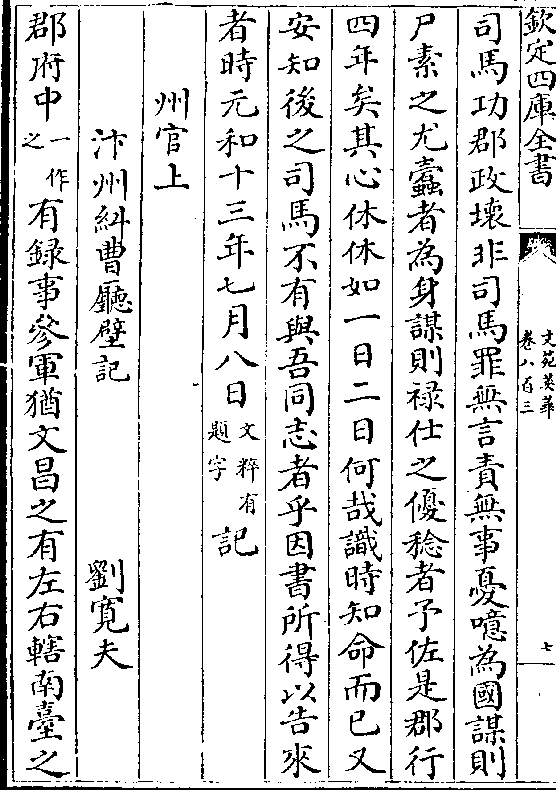 欽定四庫全書
文苑英華
卷八百三
七
司馬功郡政壞非司馬罪無言責無事憂噫為國謀則
尸素之尤蠹者為身謀則祿仕之優稔者予佐是郡行
四年矣其心休休如一日二日何哉識時知命而已又
安知後之司馬不有與吾同志者乎因書所得以告來
者時元和十三年七月八日文粹有題字記
州官上
汴州糾曹廳壁記 劉寛夫
郡府中一作之有録事參軍猶文昌之有左右轄南臺之